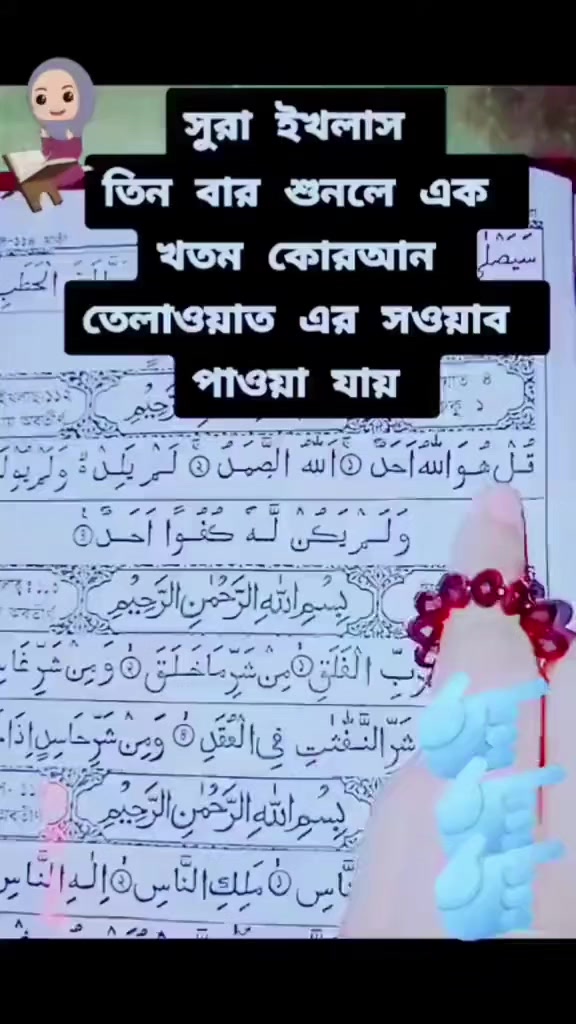 সুরা ইখলাস
তিন বার শুনলে এক
খতম কোরআন
তেলাওয়াত এর সওয়াব
পাওয়া যায়
سَيَصْلٰى
قُلْ هُوَ اللّٰهُ اَحَدٌ ۚ﴿١﴾ اَللّٰهُ الصَّمَدُ ۚ﴿٢﴾ لَمْ يَلِدْ ۙ۬ وَلَمْ يُوْلَدْ
وَلَمْ يَكُنْ لَّهٗ كُفُوًا اَحَدٌ ﴿٤﴾
بِسْمِ اللّٰهِ الرَّحْمٰنِ الرَّحِيْمِ
بِرَبِّ الْفَلَقِ ﴿١﴾ مِنْ شَرِّ مَا خَلَقَ ﴿٢﴾ وَمِنْ شَرِّ
شَرِّ النَّفّٰثٰتِ فِى الْعُقَدِ ﴿٤﴾ وَمِنْ شَرِّ حَاسِدٍ اِذَا
بِسْمِ اللّٰهِ الرَّحْمٰنِ الرَّحِيْمِ
النَّاسِ ﴿١﴾ مَلِكِ النَّاسِ ﴿٢﴾ اِلٰهِ النَّاسِ